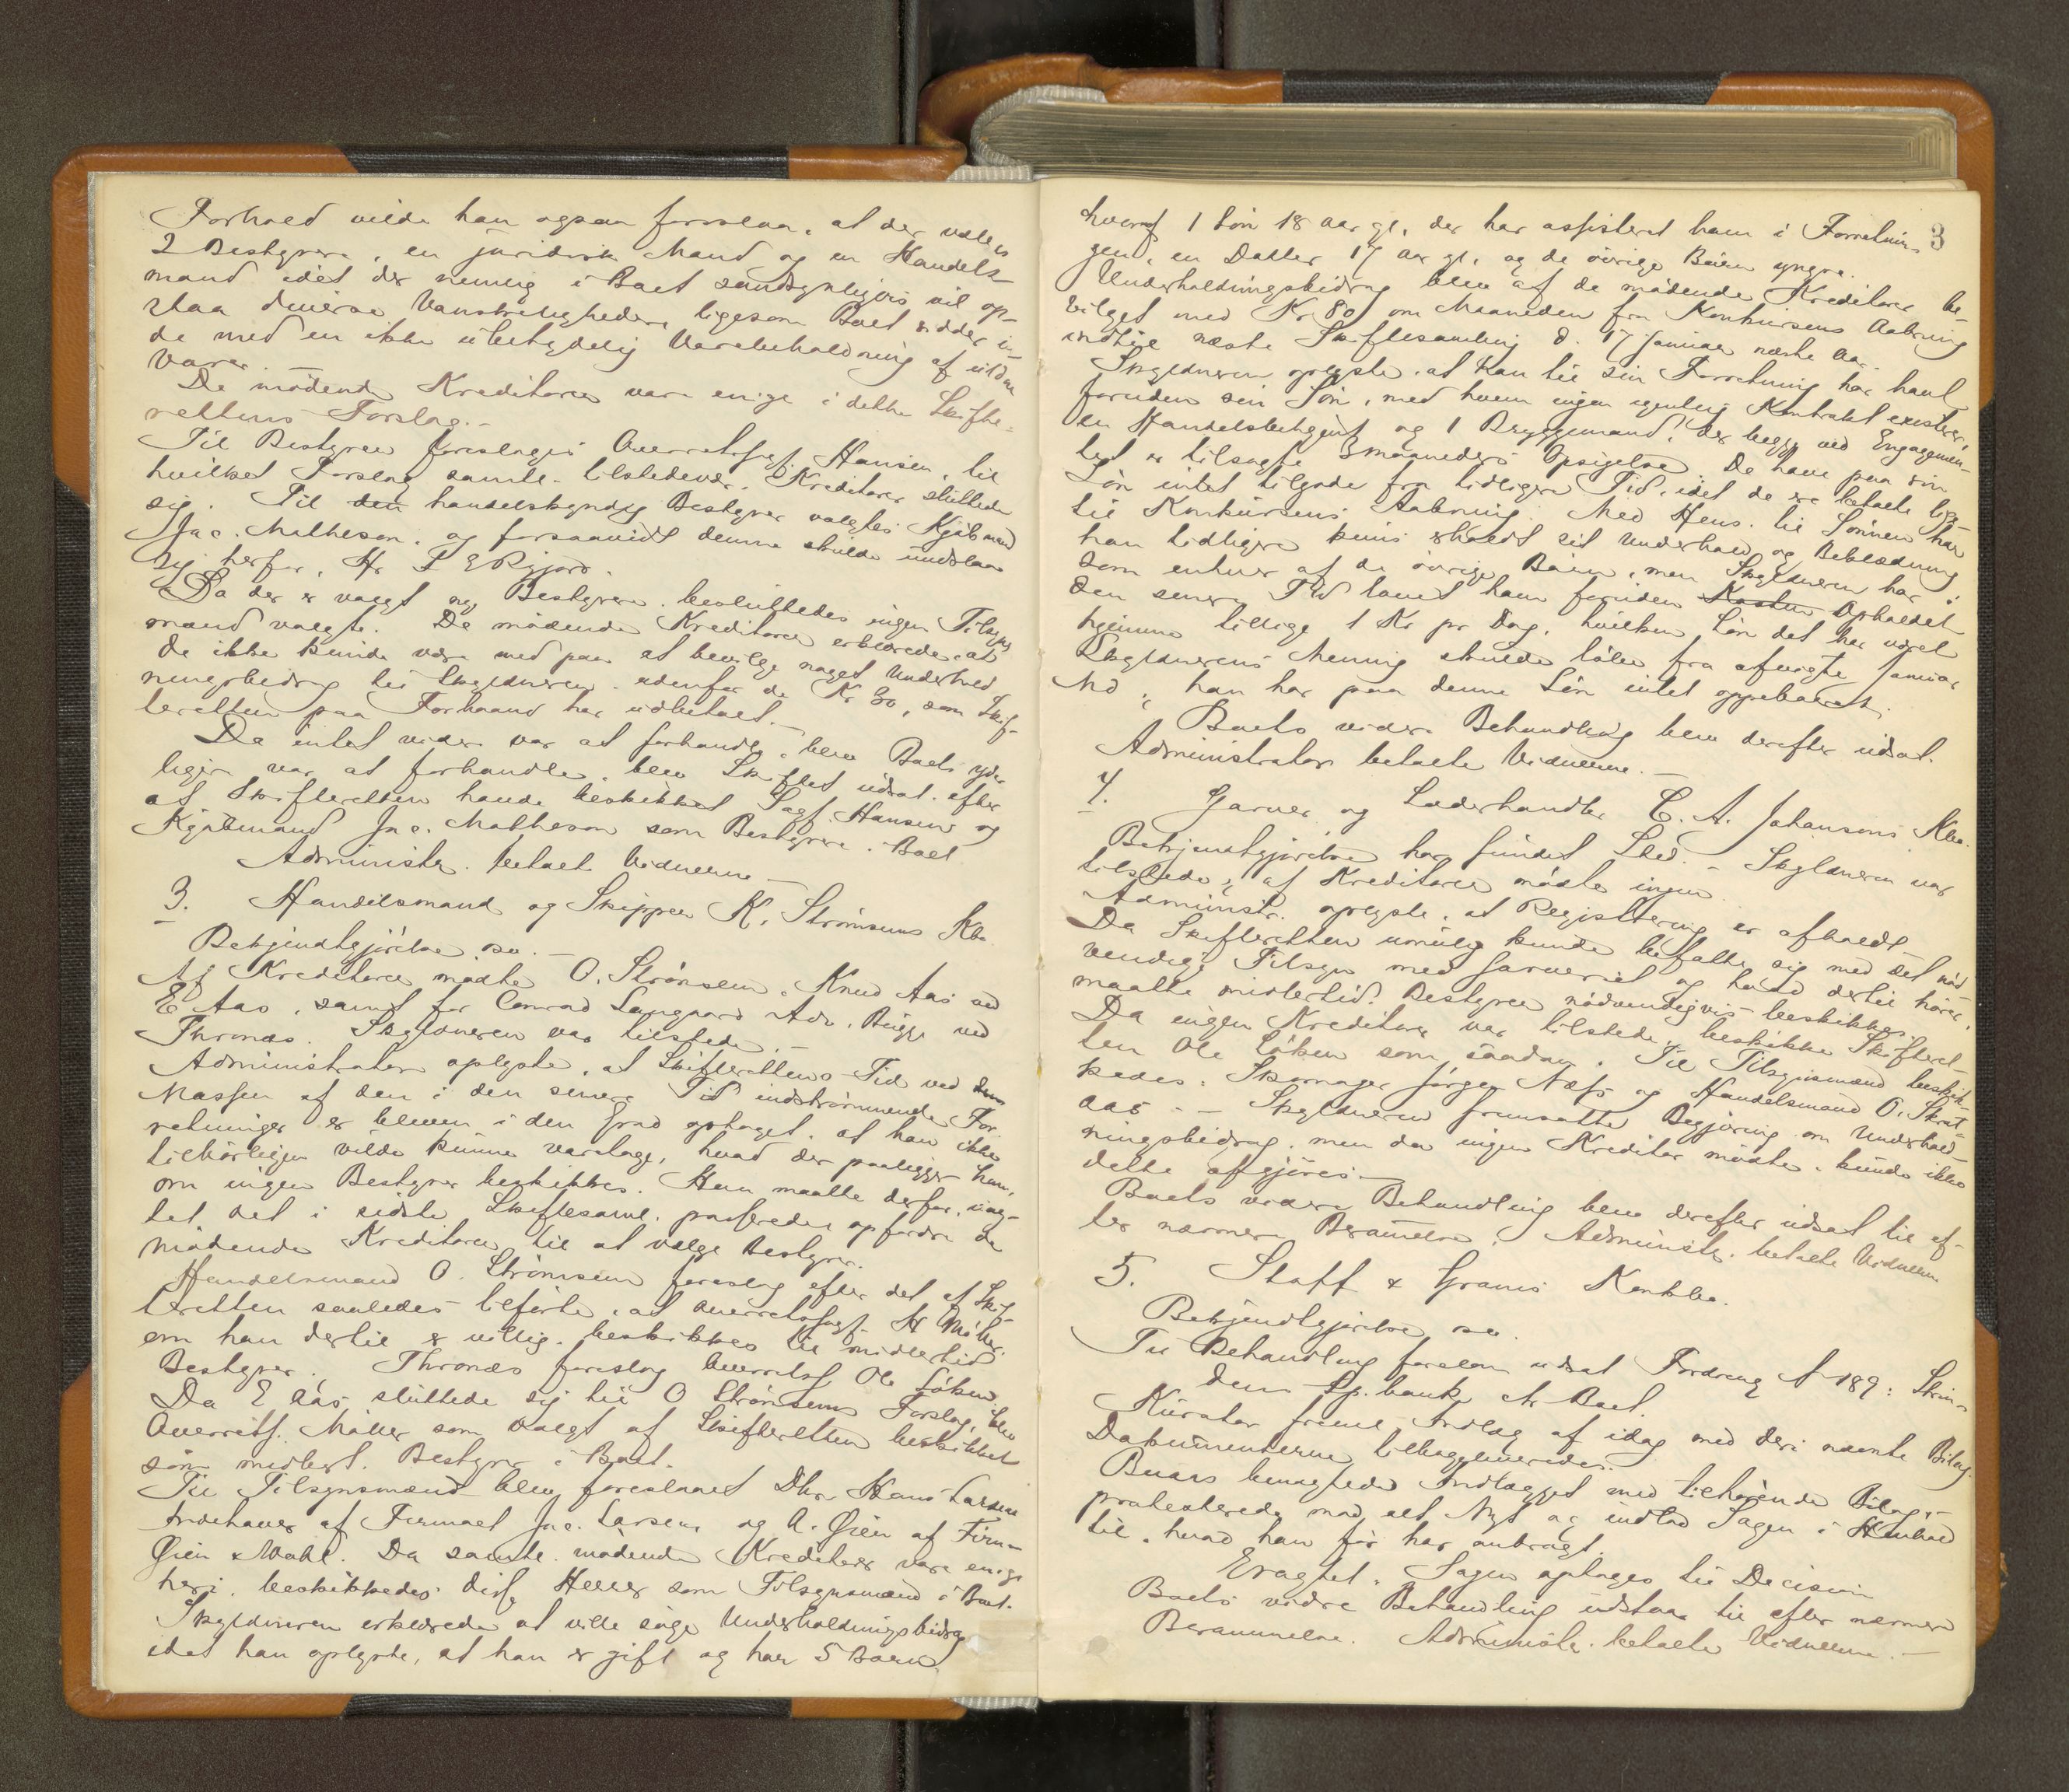 Forhold vilde han ogsaa foreslaa, at der valges
2 Bestyrere, en juridisk Mand og en Handels-
mand idet der nemlig i Boet sandsynligvis vil op-
staa diverse Vanskeligheder, ligesom Boet sidder in-
de med en ikke ubetydelig Varebeholdning af
Varer. —
De mødende Kreditorer vare enige i dette Skifte-
rettens Forslag. —
Til Bestyrer foresloges Overretssagf. Hansen, til
hvilket Forslag samtl. tilstedevær. Kreditorer sluttede
sig. Til den handelskyndig Bestyrer valgtes Kjøbmand
Jac. Matheson, og forsaavidt denne skulde undslaa
sig herfor, Hr
Da der er valgt 2 Bestyrere, besluttedes ingen Tilsyns
mænd valgte. De mødende Kreditorer erklærede, at
de ikke kunde være med paa at bevilge noget Underhold-
ningsbidrag til Skyldneren udenfor de Kr 30, som Skif-
teretten paa Forhaand har udbetalt. —
Da intet videre var at forhandle, blev Boets yder
ligere var at forhandle, blev Skiftet udsat, efter
at Skifteretten havde beskikket Sagf. Hansen og
Kjøbmand Jac. Matheson som Bestyrere i Boet
Administr. betalt Vidnerne —
3. Handelsmand og Skipper K. Strømsens Kbo.
Bekjendtgjørelse so. —
Af Kreditorer mødte O. Strømsem, Knud Aas ved
E Aas, samt for Conrad Langaard Adv. Bugge ved
Thronæs. Skyldneren var tilstede. —
Administrator oplyste, at Skifterettens Tid ved den
Massen af den i den senere Tid indstrømmende For
retninger er bleven i den Grad optaget, at han ikke
tilbørligen vilde kunne varetage, hvad der paaligger ham,
om ingen Bestyrer beskikkes. Han maatte derfor, uag-
tet det i sidste Skiftesaml. passerede, opfordre de
mødende Kreditorer til at vælge Bestyrer.
Handelsmand O. Strømsem foreslog efter det af Skif-
teretten saaledes tilførte, at Overretssagf. H Møller,
om han dertil er villig, beskikkes til midlertid
Bestyrer. Thronæs foreslog Overretssf. Ole Løken
Da E Aas sluttede sig til O Strømsems Forslag, blev
Overretsf. Møller som valgt af Skifteretten beskikket
som midlert. Bestyrer i Boet.
Til Tilsynsmænd blev foreslaaet Dhr. Hans Larsen
Indehaver af Firmaet Jac. Larsen og A. Øien af Firma
Øien & Wahl. Da samtl. mødende Kreditorer vare enige
heri, beskikkedes disse Herrer som Tilsynsmænd i Boet.
Skyldneren erklærede at ville søge Underholdningsbidrag
idet han oplyste, at han er gift og har 5 Børn
3
hvoraf 1 Søn 18 aar gl., der har assisteret ham i Forretnin-
gen, en Datter 17 aar gl. og de øvrige Børn yngre.
Underholdningsbidrag blev af de mødende Kreditorer be-
vilget med Kr 80 om Maaneden fra Konkursens Aabning
indtil næste Skiftesamling d. 17 Januar næste Aar.
Skyldneren oplyste, at han til sin Forretning har havt
foruden sin Søn, med hvem ingen egentlig Kontrakt existerer,
en Handelsbetjent og 1 Bryggemand, der begge ved Engagemen-
tet er tilsagte 3 Maaneders Opsigelse. De have paa sin
Løn intet tilgode fra tidligere Tid, idet de ere betalte lige
til Konkursens Aabning. Med Hens. til Sønnen har
han tidligere kuns erholdt sit Underhold og Beklædning
som enhver af de øvrige Børn, men Skyldneren har i
den senere Tid lovet ham foruden Kosten Opholdet
hjemme tillige 1 Kr pr Dag, hvilken Løn det har været
Skyldnerens Mening skulde løbe fra afvigte Januar
Md., han har paa denne Løn intet oppebaaret.
Boets videre Behandling blev derefter udsat.
Administrator betalte Vidnerne. —
4. Garver og Læderhandler C. A. Johansens Kbo.
Bekjendtgjørelse har fundet Sted. — Skyldneren var
tilstede, af Kreditorer mødte ingen
Administr. oplyste, at Registrering er afholdt
Da Skifteretten umulig kunde befatte sig med det nød
vendige Tilsyn med Garveriet og hvad dertil hører,
maatte midlertid. Bestyrer nødvendigvis beskikkes.
Da ingen Kreditorer var tilstede, beskikke Skifteret-
ten Ole Løken som saadan. Til Tilsynsmænd beskik-
kedes: Skomager Jørgen Næss og Handelsmand O. Skrat-
aas. — Skyldneren fremsatte Begjæring om Underhold-
ningsbidrag, men da ingen Kreditor mødte, kunde ikke
dette afgjøres. —
Boets videre Behandling blev derefter udsat til ef-
ter nærmere Berammelse. Administr. betalte Vidnerne
5. Staff & Grams Konkbo.
Bekjendtgjørelse so.
Til Behandling forelaa udsat Fordring N 189: Strin-
dens Sp.bank ctr Boet.
Kurator freml. Indlæg af idag med deri nævnte Bilag.
Dokumenterne tilbageleveredes.
Buaas benægtede Indlægget med tilhørende Bilag, —
protesterede mod alt Nyt og indlod Sagen i Henhold
til, hvad han før har anbragt.
Eragtet: Sagen optages til Decision
Boets videre Behandling udstaar til efter nærmere
Berammelse. Administr. betalte Vidnerne. —